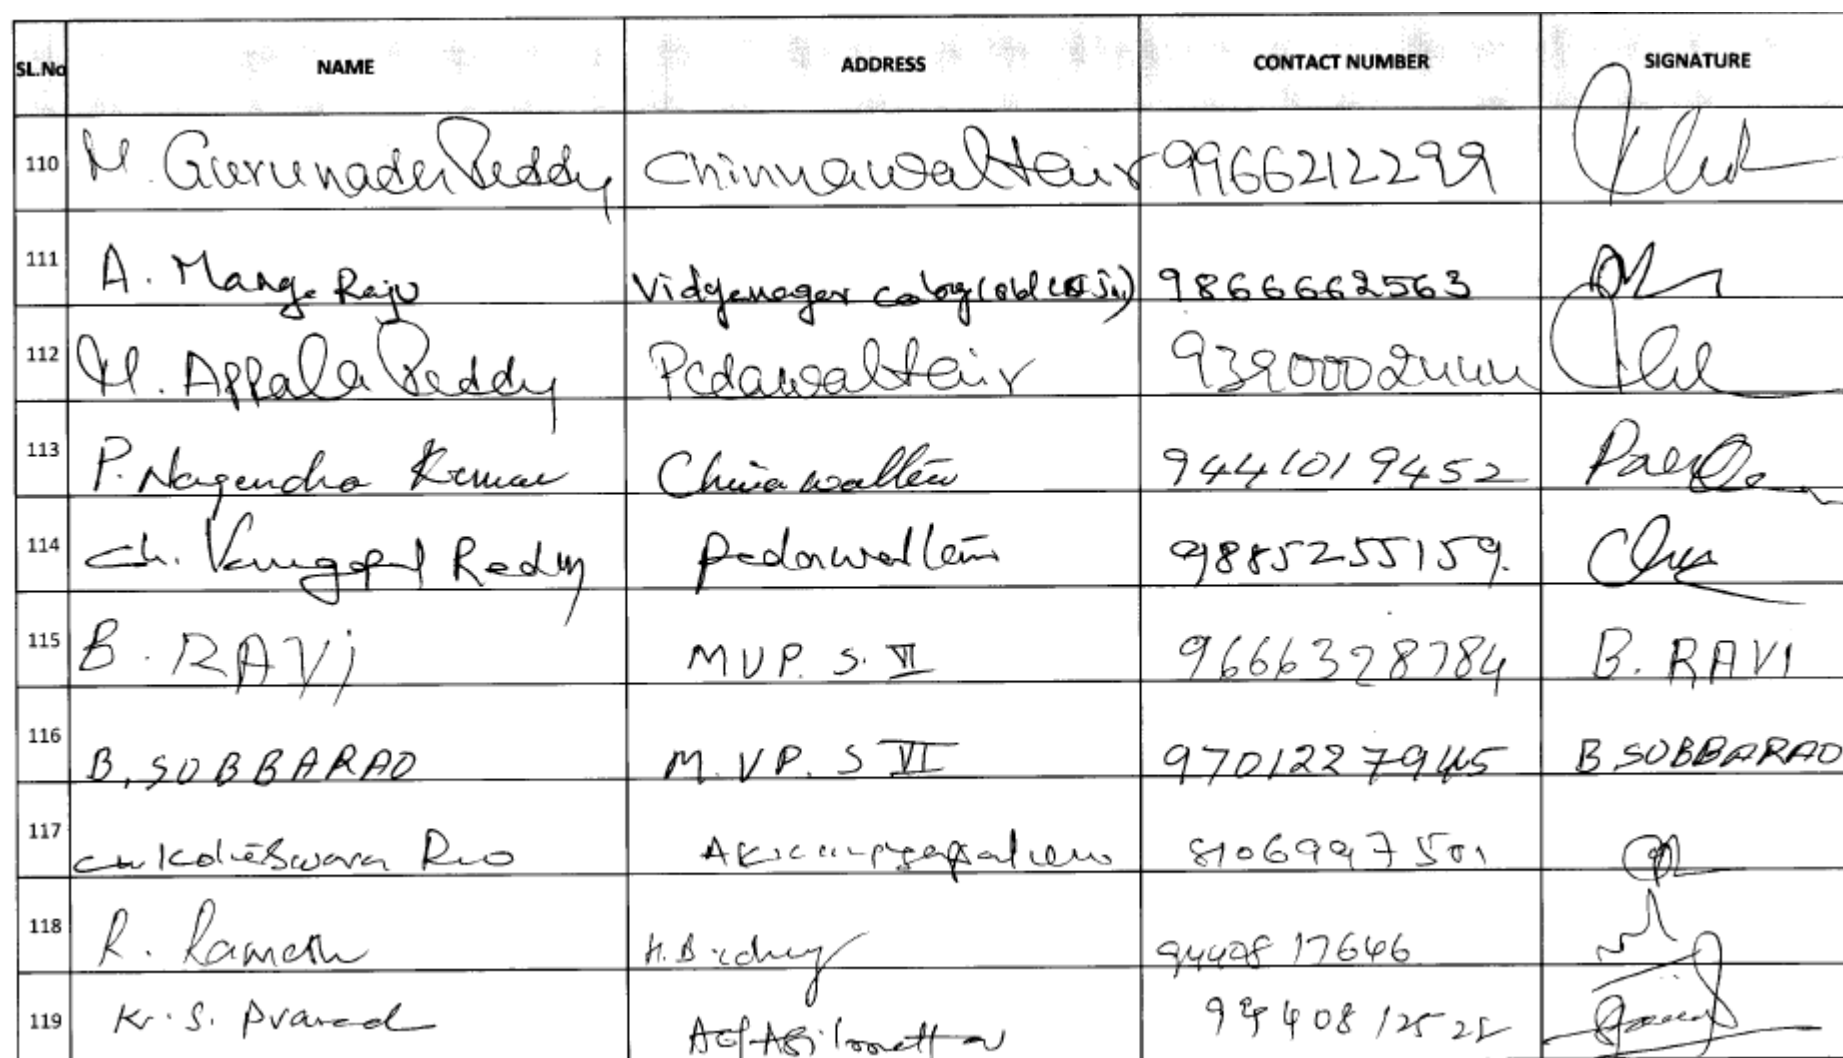 SL.No NAME ADDRESS CONTACT NUMBER SIGNATURE
110 M. Gurunada Reddy Chinnawaltair 9966212299
111 A. Manga Raju Vidyanagar 9866662563
112 M. Appala Reddy Pedawaltair
113 P. Nagendra Kumar China waltair 9441019452
114 Ch. Venugopal Reddy pedawaltair 9885255159.
115 B. RAVi MVP. S. VI 9666328784 B. RAVI
116 B. SUBBARAO M. VP. S VI 9701227945 B SUBBARAO
117 Ch Koteswara Rao 8106997501
118 R. Ramesh
119 K. S. Prasad